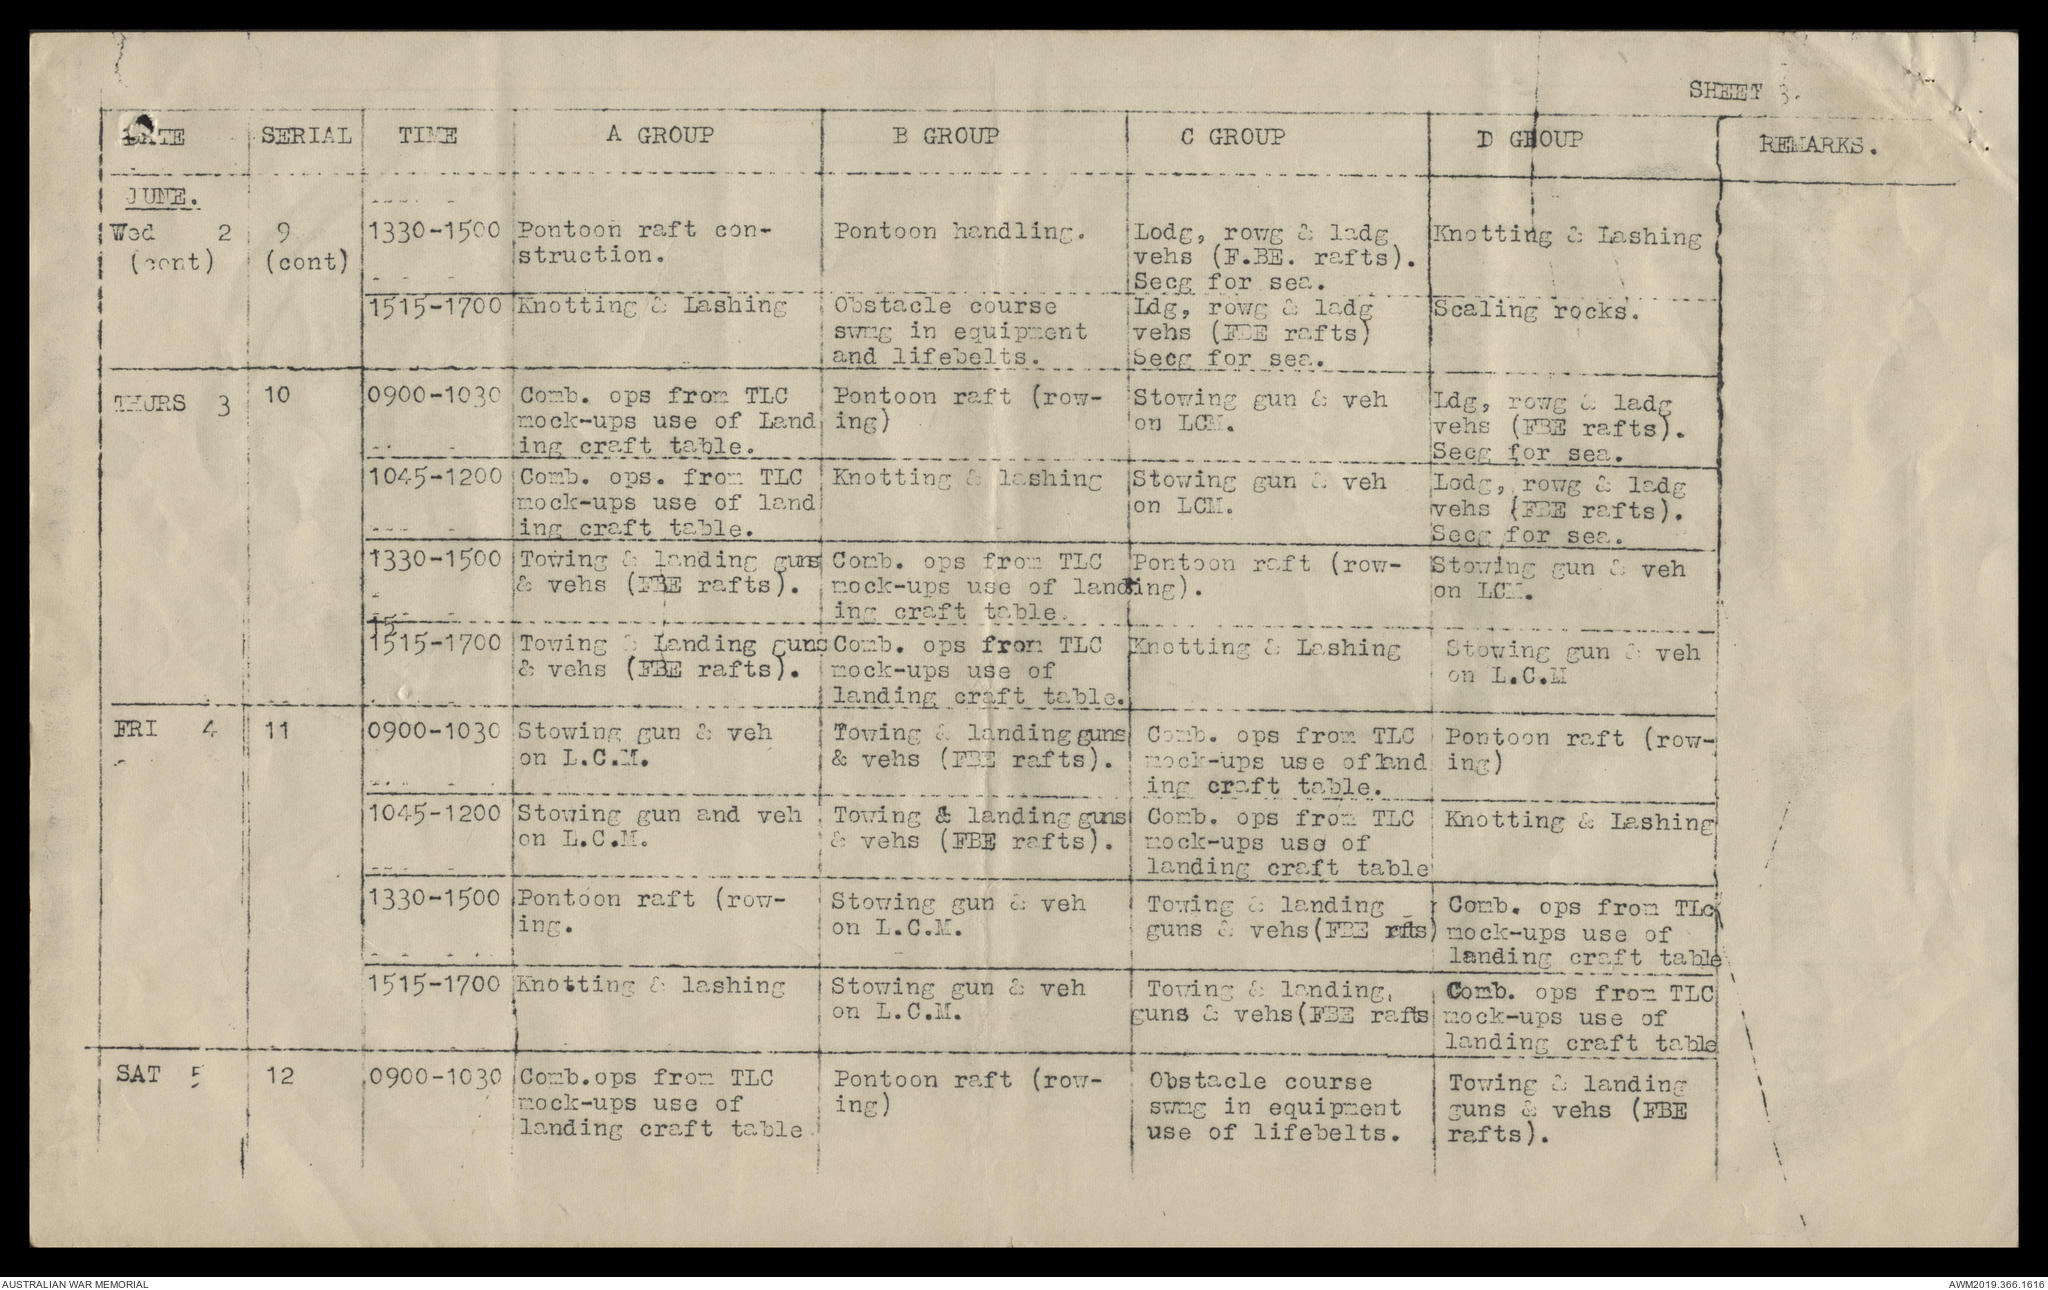 SHEET 3.
DATE SERIAL TIME A GROUP B GROUP C GROUP D GROUP REMARKS.
JUNE.
Wed 2 9 1330-1500 Pontoon raft con- Pontoon handling. Lodg, rowg & ladg Knotting & Lashing
(cont) (cont) struction. vehs (F.BE. rafts).
Secg for sea.
1515-1700 Knotting & Lashing Obstacle course Ldg, rowg & ladg Scaling rocks.
swmg in equipment vehs (FBE rafts)
and lifebelts. Secg for sea.
THURS 3 10 0900-1030 Comb. ops from TLC Pontoon raft (row- Stowing gun & veh Ldg, rowg & ladg
mock-ups use of Land ing) on LCM. vehs (FBE rafts).
ing craft table. Secg for sea.
1045-1200 Comb. ops. from TLC Knotting & lashing Stowing gun & veh Lodg, rowg & ladg
mock-ups use of land on LCM. vehs (FBE rafts).
ing craft table. Secg for sea.
1330-1500 Towing & landing guns Comb. ops from TLC Pontoon raft (row- Stowing gun & veh
& vehs (FBE rafts). mock-ups use of land ing). on LCM.
ing craft table.
15
1515-1700 Towing & Landing guns Comb. ops from TLC Knotting & Lashing Stowing gun & veh
& vehs (FBE rafts). mock-ups use of on L.C.M
landing craft table.
FRI 4 11 0900-1030 Stowing gun & veh Towing & landing guns Comb. ops from TLC Pontoon raft (row-
on L.C.M. & vehs (FBE rafts). mock-ups use of land ing)
ing craft table.
1045-1200 Stowing gun and veh Towing & landing guns Comb. ops from TLC Knotting & Lashing
on L.C.M. & vehs (FBE rafts). mock-ups use of
landing craft table
1330-1500 Pontoon raft (row- Stowing gun & veh Towing & landing Comb. ops from TLC
ing. on L.C.M. guns & vehs(FBE rafts) mock-ups use of
landing craft table
1515-1700 Knotting & lashing Stowing gun & veh Towing & landing, Comb. ops from TLC
on L.C.M. guns & vehs(FBE rafts mock-ups use of
landing craft table
SAT 5 12 0900-1030 Comb.ops from TLC Pontoon raft (row- Obstacle course Towing & landing
mock-ups use of ing) swmg in equipment guns & vehs (FBE
landing craft table. use of lifebelts. rafts).
AUSTRALIAN WAR MEMORIAL AWM2019.366.1616